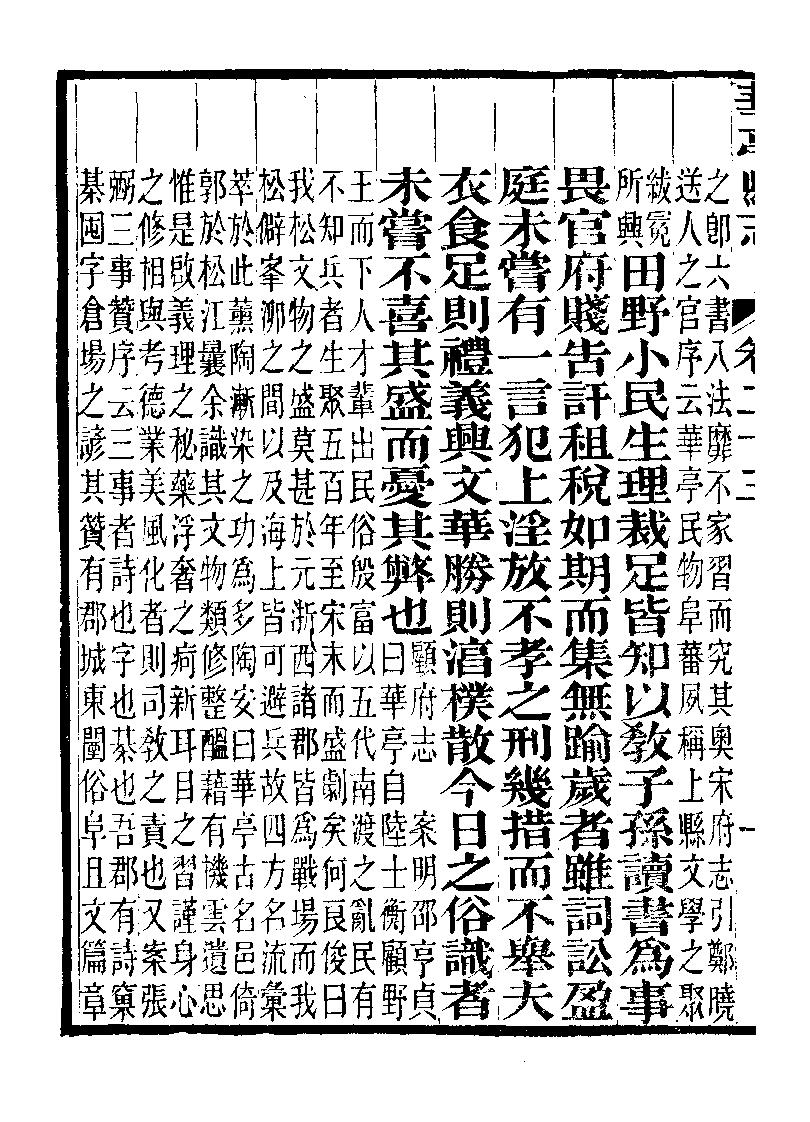 華亭縣志 卷二十三 一
之卽六書八法靡不家習而究其奧宋府志引鄭曉
送人之官序云華亭民物阜蕃夙稱上縣文學之聚
紱冕
所興
田野小民生理裁足皆知以敎子孫讀書爲事
畏官府賤告訐租稅如期而集無踰歲者雖詞訟盈
庭未嘗有一言犯上淫放不孝之刑幾措而不舉夫
衣食足則禮義興文華勝則湻樸散今日之俗識者
未嘗不喜其盛而憂其弊也
顧府志 案明邵亨貞
曰華亭自陸士衡顧野
王而下人才輩出民俗殷富以五代南渡之亂民有
不知兵者生聚五百年至宋末而盛劇矣何良俊曰
我松文物之盛莫甚於元浙西諸郡皆爲戰場而我
松僻峯泖之間以及海上皆可避兵故四方名流彙
萃於此薰陶漸染之功爲多陶安曰華亭古名邑倚
郭於松江曩余識其文物類修整醞藉有機雲遺思
惟是啟義理之秘藥浮奢之痾新耳目之習謹身心
之修相與考德業美風化者則司敎之責也又案張
弼三事贊序云三事者詩也字也棊也吾郡有詩窠
棊囤字倉場之諺其贊有郡城東闉俗阜且文篇章